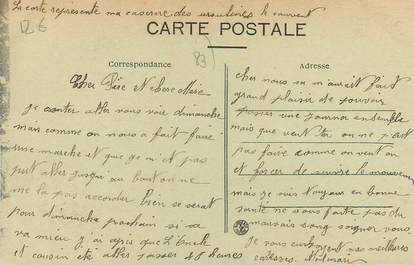 La carte représente ma caserne des ursulines le couvent
CARTE POSTALE
Correspondance
Cher Père et chère Mère
je conter aller vous voir dimanche
mais comme on nous a fait faire
une marche et que je n'et pas
put aller jusqu'au bout on ne
me la pas accorder bien se serat
pour dimanche prochain si sa
va mieu j'ai apris que l'Oncle
et cousin été aller passer 48 heures
Adresse
cher nous sa m'aurait fait
grand plaisir de pouvoir
passer une journer ensemble
mais que veut tu on ne peut
pas faire comme on veut on
et forcer de suivre le mouvement
mais je suis toujour en bonne
santé ne vous faite pas du
mauvais sang soigner vous
je vous
meilleures
caresses